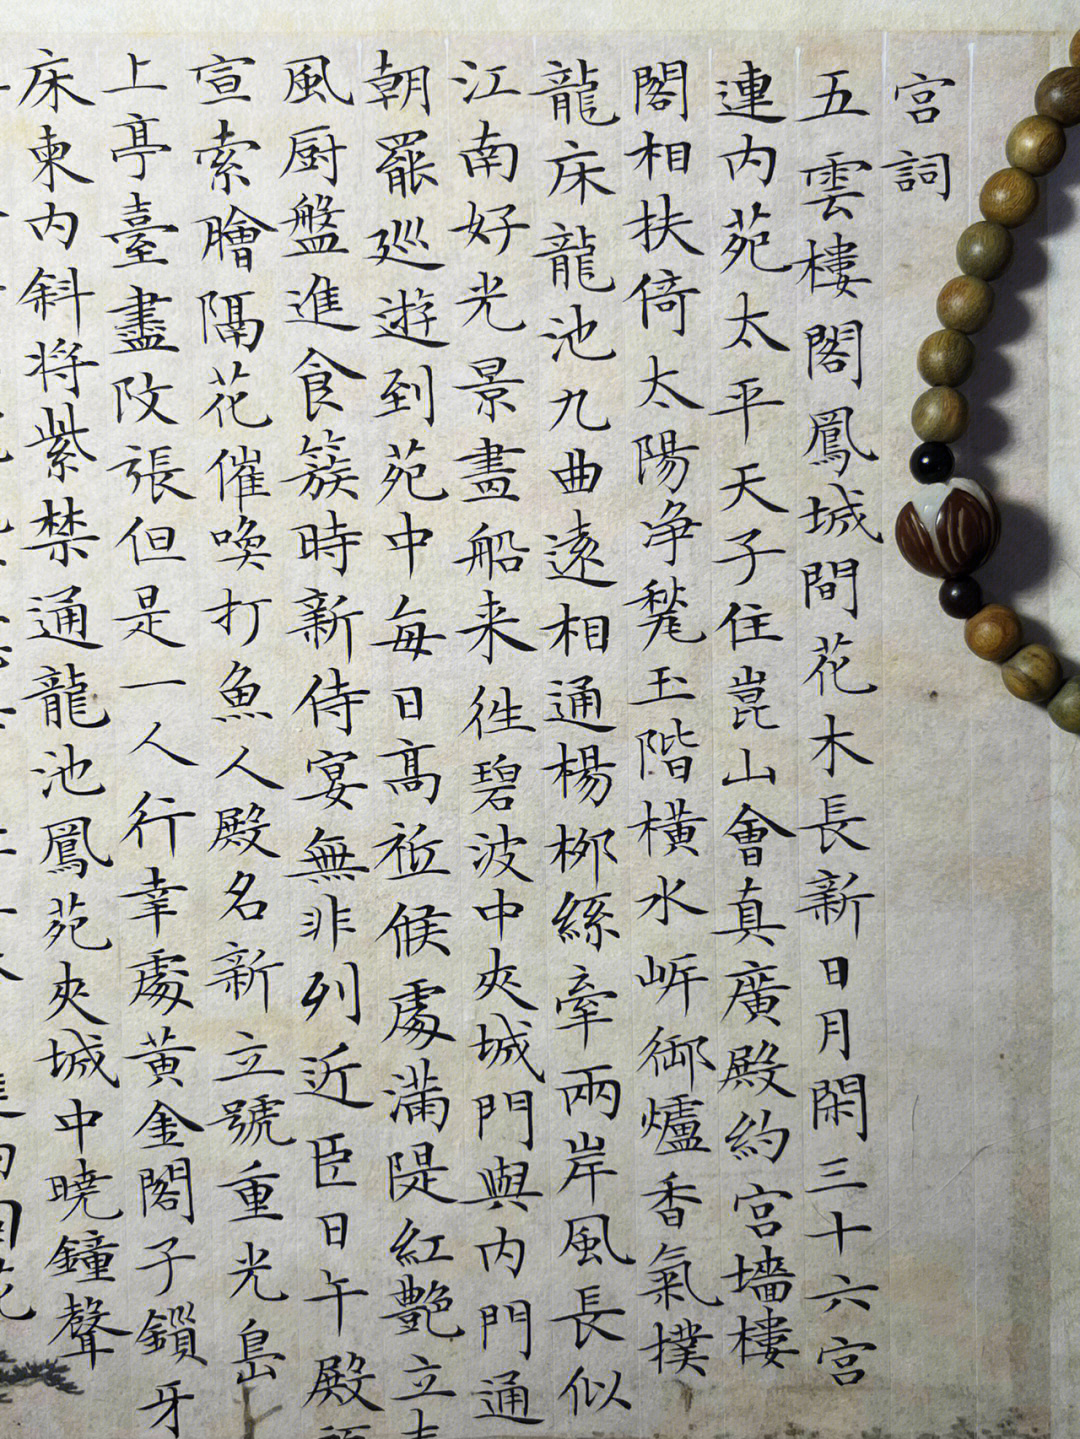 宮詞
五雲樓閣鳳城間花木長新日月閑三十六宮
連內苑太平天子住崑山會真廣殿約宮墻樓
閣相扶倚太陽净甃玉階橫水岍御爐香氣撲
龍床龍池九曲遠相通楊栁絲牽兩岸風長似
江南好光景畫船来徃碧波中夾城門與內門通
朝罷巡遊到苑中每日高祗候處滿隄紅艷立
風厨盤進食簇時新侍宴無非列近臣日午殿
宣索膾隔花催喚打魚人殿名新立號重光島
上亭臺盡改張但是一人行幸處黃金閣子鎖牙
床東內斜将紫禁通龍池鳳苑夾城中曉鐘聲